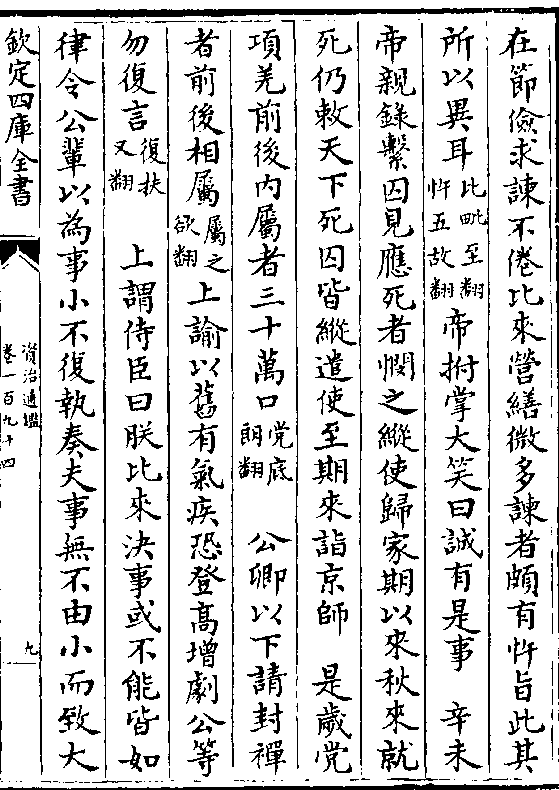 在節儉求諫不倦比來營繕微多諫者頗有忤旨此其
所以異耳比毗至翻忤五故翻帝拊掌大笑曰誠有是事　辛未
帝親錄繫囚見應死者憫之縱使歸家期以來秋來就
死仍敕天下死囚皆縱遣使至期來詣京師　是歲党
項羌前後內屬者三十萬口党底朗翻　公卿以下請封禪
者前後相屬屬之欲翻上諭以舊有氣疾恐登髙增劇公等
勿復言復扶又翻　上謂侍臣曰朕比來決事或不能皆如
律令公輩以為事小不復執奏夫事無不由小而致大
欽定四庫全書
資治通鑑
卷一百九十四
九